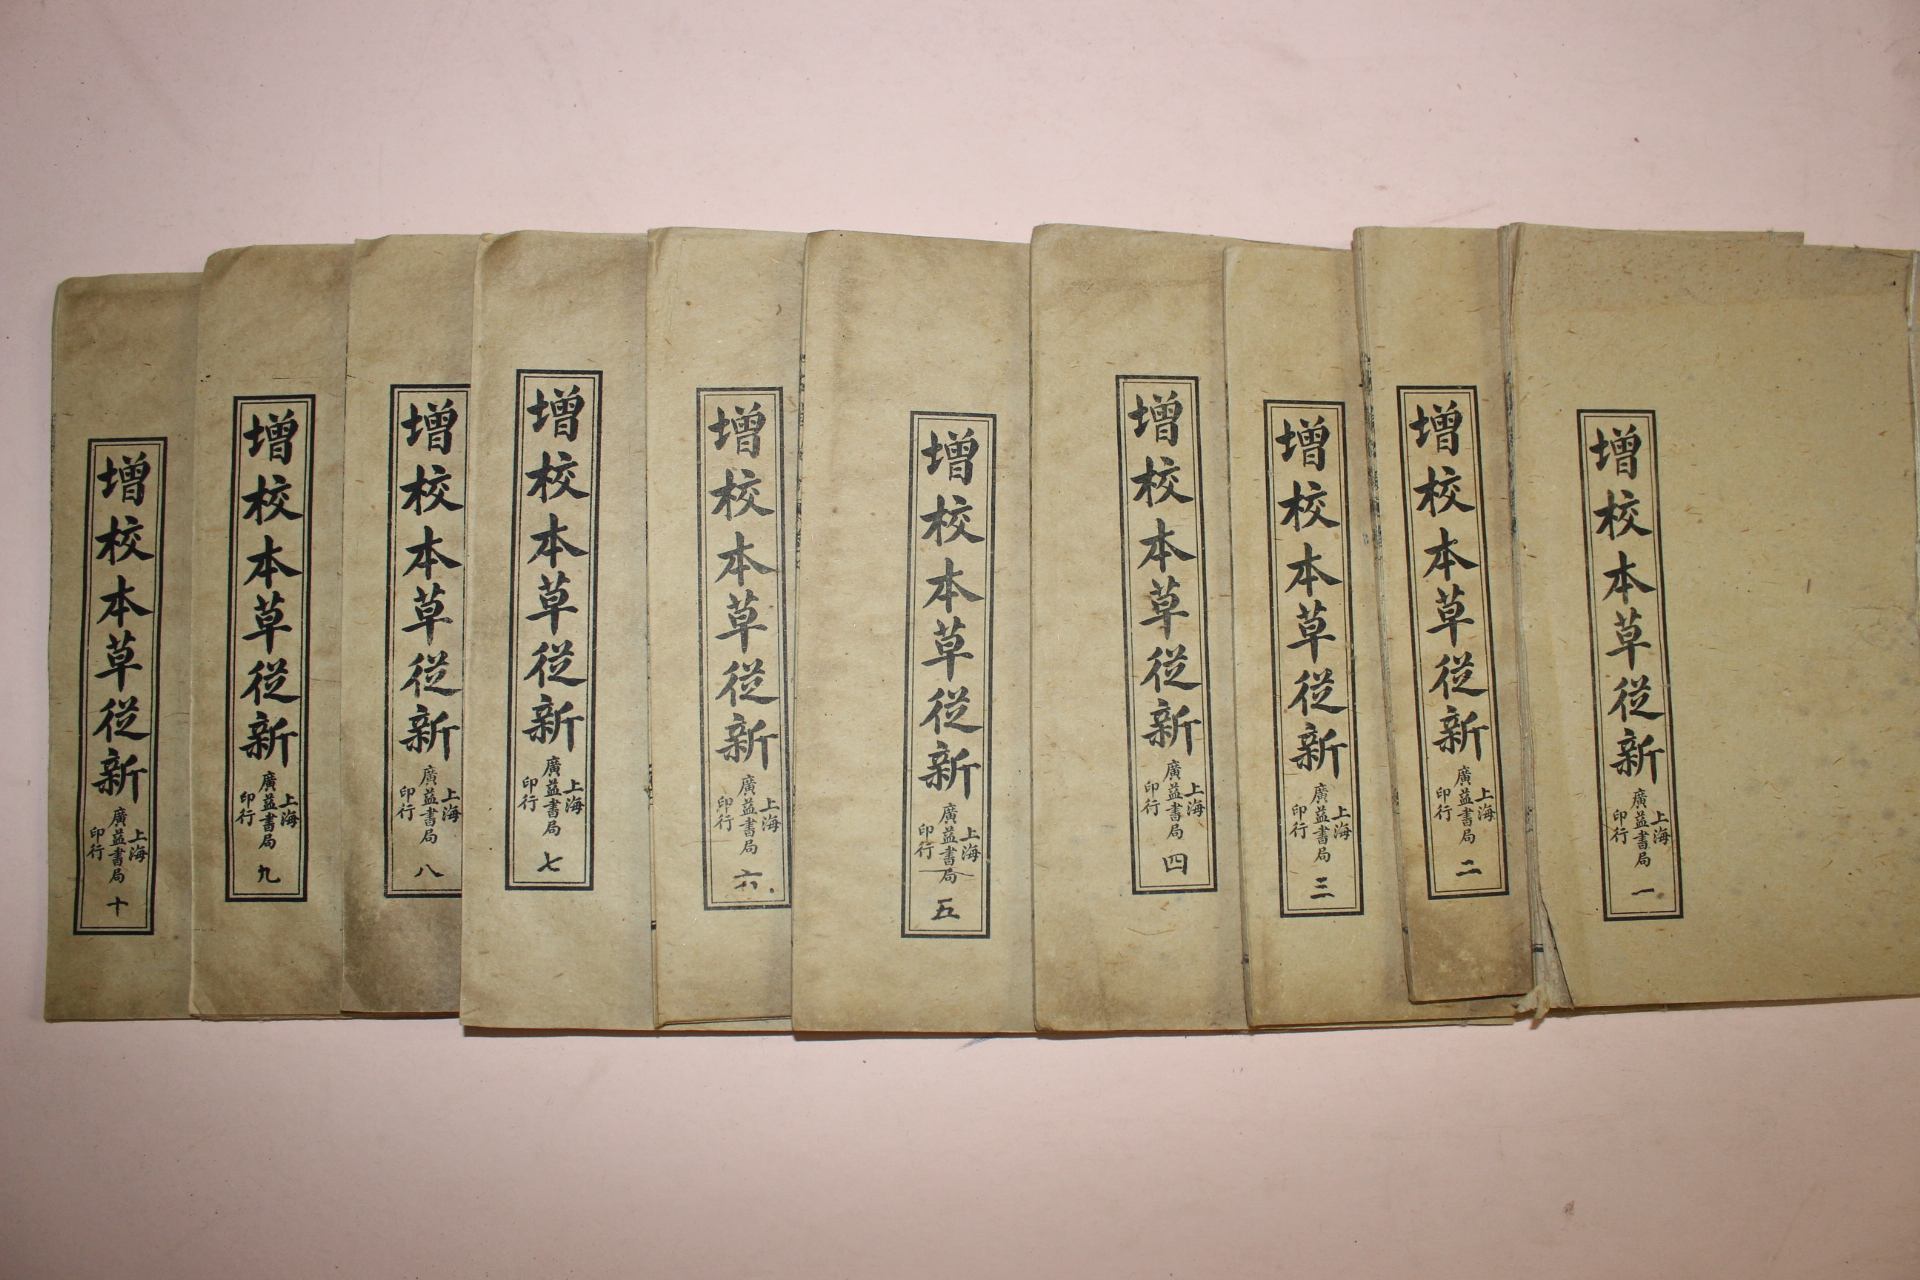 增校本草從新
上海
廣益書局
印行
一
增校本草從新
上海
廣益書局
印行
二
增校本草從新
上海
廣益書局
印行
三
增校本草從新
上海
廣益書局
印行
四
增校本草從新
上海
廣益書局
印行
五
增校本草從新
上海
廣益書局
印行
六
增校本草從新
上海
廣益書局
印行
七
增校本草從新
上海
廣益書局
印行
八
增校本草從新
上海
廣益書局
印行
九
增校本草從新
上海
廣益書局
印行
十